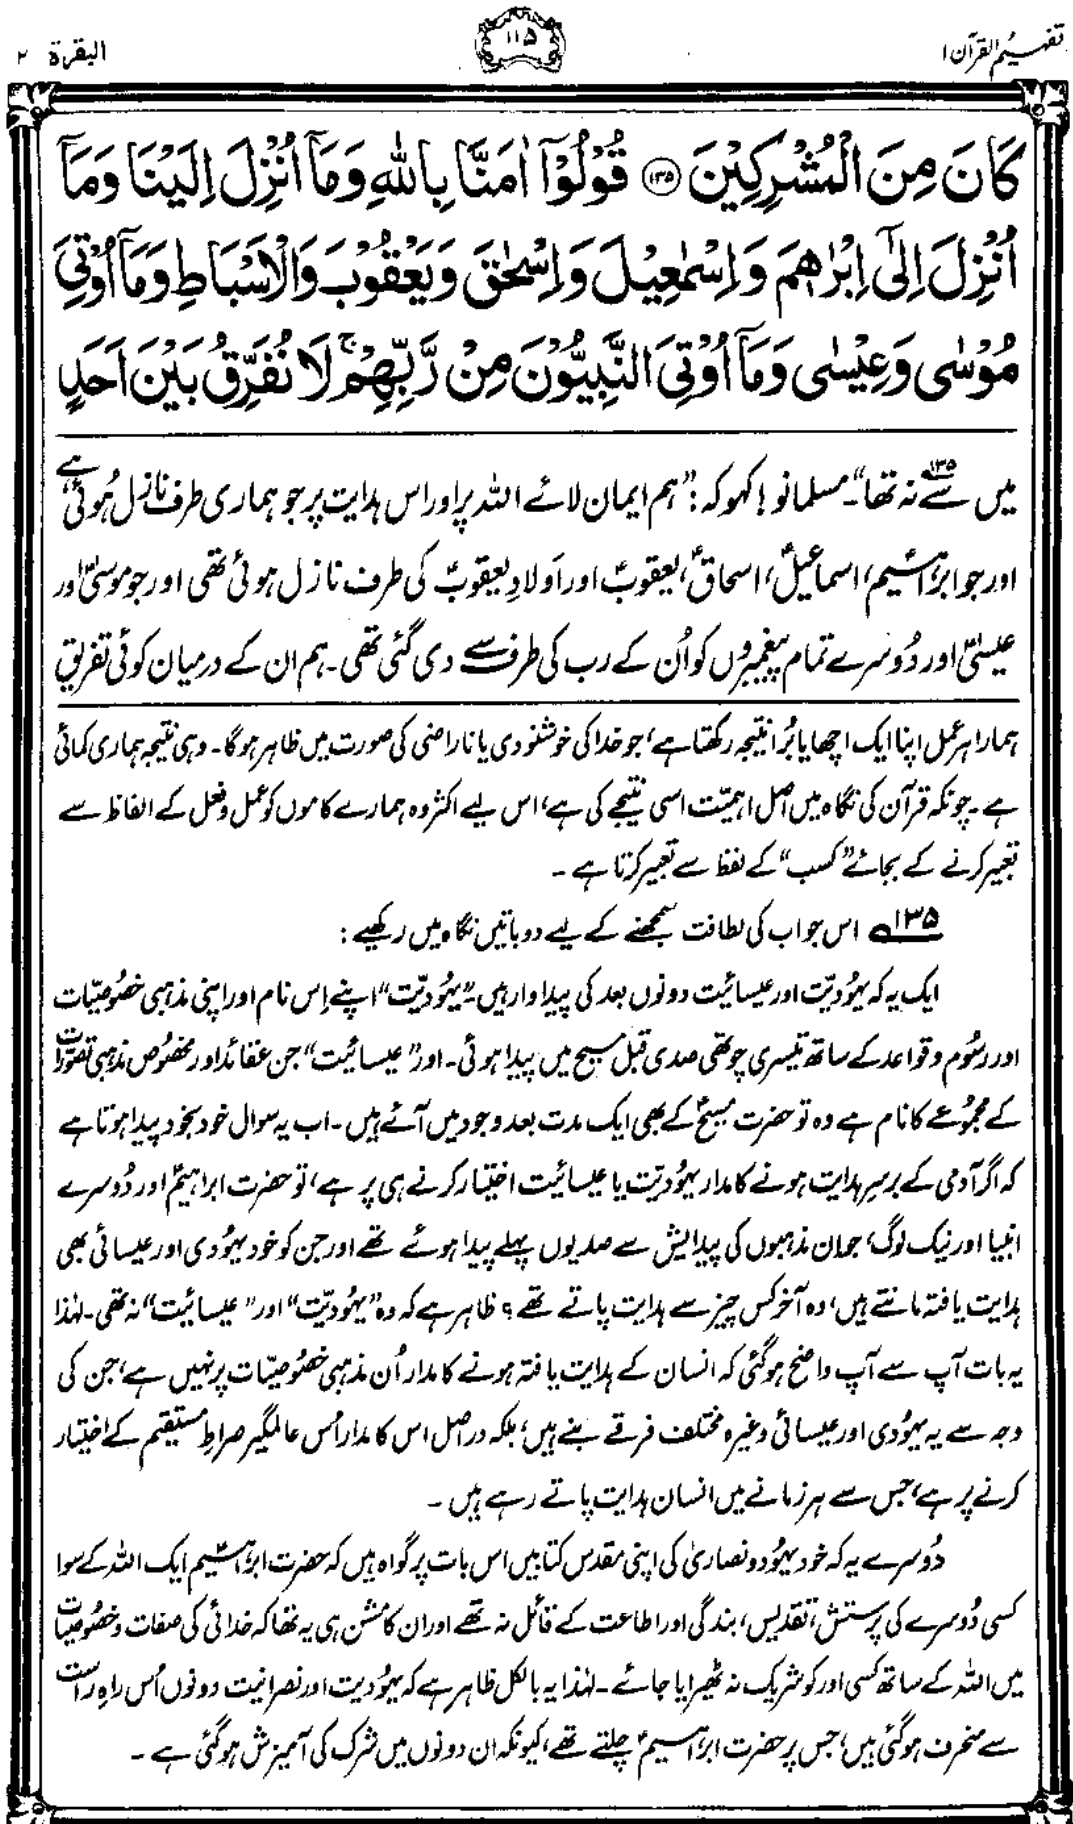 تفہیم القرآن ۱
۱۱۵
البقرۃ ۲
كَانَ مِنَ الْمُشْرِكِيْنَ ﴿۱۳۵﴾ قُوْلُوْٓا اٰمَنَّا بِاللّٰهِ وَمَآ اُنْزِلَ اِلَيْنَا وَمَآ
اُنْزِلَ اِلٰٓى اِبْرٰهٖمَ وَاِسْمٰعِيْلَ وَاِسْحٰقَ وَيَعْقُوْبَ وَالْاَسْبَاطِ وَمَآ اُوْتِيَ
مُوْسٰى وَعِيْسٰى وَمَآ اُوْتِيَ النَّبِيُّوْنَ مِنْ رَّبِّهِمْ ۚ لَا نُفَرِّقُ بَيْنَ اَحَدٍ
میں سے نہ تھا“۔۱۳۵ مسلمانو! کہو کہ: ”ہم ایمان لائے اللہ پر اور اس ہدایت پر جو ہماری طرف نازل ہوئی ہے
اور جو ابراہیمؑ، اسماعیلؑ، اسحاقؑ، یعقوبؑ اور اَولادِ یعقوبؑ کی طرف نازل ہوئی تھی اور جو موسیٰؑ اور
عیسیٰؑ اور دُوسرے تمام پیغمبروں کو اُن کے رب کی طرف سے دی گئی تھی۔ ہم ان کے درمیان کوئی تفریق
ہمارا ہر عمل اپنا ایک اچھا یا بُرا نتیجہ رکھتا ہے، جو خدا کی خوشنودی یا ناراضی کی صورت میں ظاہر ہوگا۔ وہی نتیجہ ہماری کمائی
ہے۔ چونکہ قرآن کی نگاہ میں اصل اہمیّت اسی نتیجے کی ہے، اس لیے اکثر وہ ہمارے کاموں کو عمل وفعل کے الفاظ سے
تعبیر کرنے کے بجائے ”کسب“ کے لفظ سے تعبیر کرتا ہے۔
۱۳۵ اس جواب کی لطافت سمجھنے کے لیے دو باتیں نگاہ میں رکھیے:
ایک یہ کہ یہُودیّت اور عیسائیت دونوں بعد کی پیداوار ہیں۔ ”یہُودیّت“ اپنے اِس نام اور اپنی مذہبی خصُوصیّات
اور رسُوم وقواعد کے ساتھ تیسری چوتھی صدی قبل مسیح میں پیدا ہوئی۔ اور ”عیسائیت“ جن عقائد اور مخصُوص مذہبی تصوّرات
کے مجمُوعے کا نام ہے وہ تو حضرت مسیحؑ کے بھی ایک مدت بعد وجود میں آئے ہیں۔ اب یہ سوال خود بخود پیدا ہوتا ہے
کہ اگر آدمی کے برسرِ ہدایت ہونے کا مدار یہُودیّت یا عیسائیت اختیار کرنے ہی پر ہے، تو حضرت ابراہیمؑ اور دُوسرے
انبیا اور نیک لوگ، جو ان مذہبوں کی پیدایش سے صدیوں پہلے پیدا ہوئے تھے اور جن کو خود یہُودی اور عیسائی بھی
ہدایت یافتہ مانتے ہیں، وہ آخر کس چیز سے ہدایت پاتے تھے؟ ظاہر ہے کہ وہ ”یہُودیّت“ اور ”عیسائیت“ نہ تھی۔ لہٰذا
یہ بات آپ سے آپ واضح ہوگئی کہ انسان کے ہدایت یافتہ ہونے کا مدار اُن مذہبی خصُوصیّات پر نہیں ہے، جن کی
وجہ سے یہ یہُودی اور عیسائی وغیرہ مختلف فرقے بنے ہیں، بلکہ دراصل اس کا مدار اُس عالمگیر صراطِ مستقیم کے اختیار
کرنے پر ہے، جس سے ہر زمانے میں انسان ہدایت پاتے رہے ہیں۔
دُوسرے یہ کہ خود یہُود و نصاریٰ کی اپنی مقدس کتابیں اس بات پر گواہ ہیں کہ حضرت ابراہیم ایک اللہ کے سوا
کسی دُوسرے کی پرستش، تقدیس، بندگی اور اطاعت کے قائل نہ تھے اور ان کا مشن ہی یہ تھا کہ خدائی کی صفات وخصُوصیّات
میں اللہ کے ساتھ کسی اور کو شریک نہ ٹھیرایا جائے۔ لہٰذا یہ بالکل ظاہر ہے کہ یہُودیت اور نصرانیت دونوں اُس راہِ راست
سے منحرف ہوگئی ہیں، جس پر حضرت ابراہیمؑ چلتے تھے، کیونکہ ان دونوں میں شرک کی آمیزش ہوگئی ہے۔